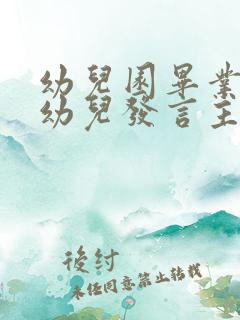 幼兒園畢業
幼兒發言主
後紂
未經同意禁止轉載